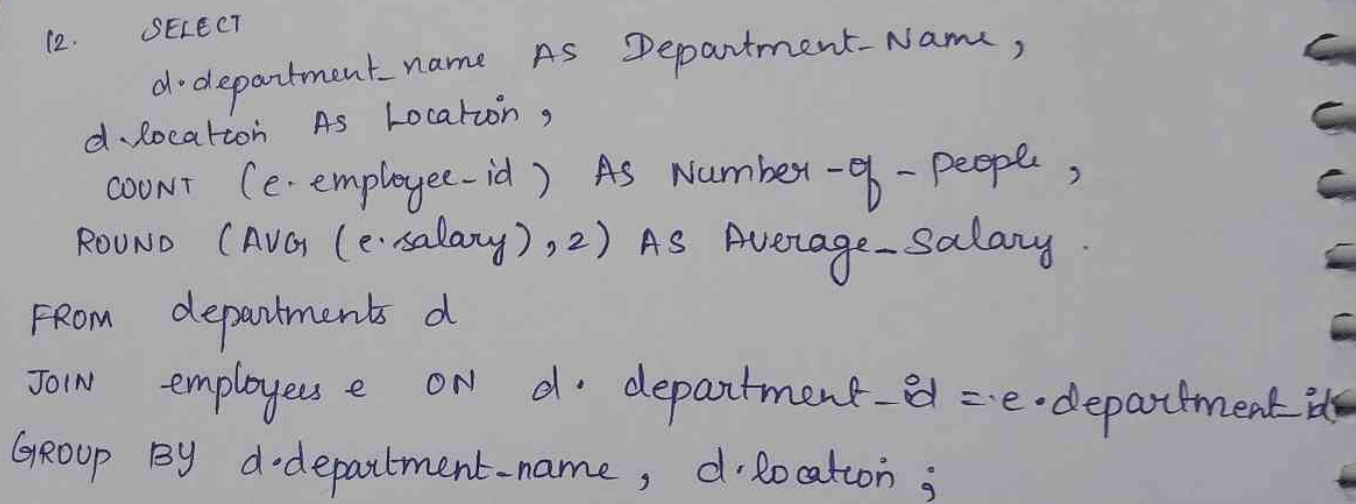 12. SELECT
d.department_name AS Department_Name,
d.location AS Location,
COUNT (e.employee_id) AS Number_of_People,
ROUND (AVG (e.salary), 2) AS Average_Salary.
FROM departments d
JOIN employees e ON d.department_id = e.department_id
GROUP BY d.department_name, d.location;